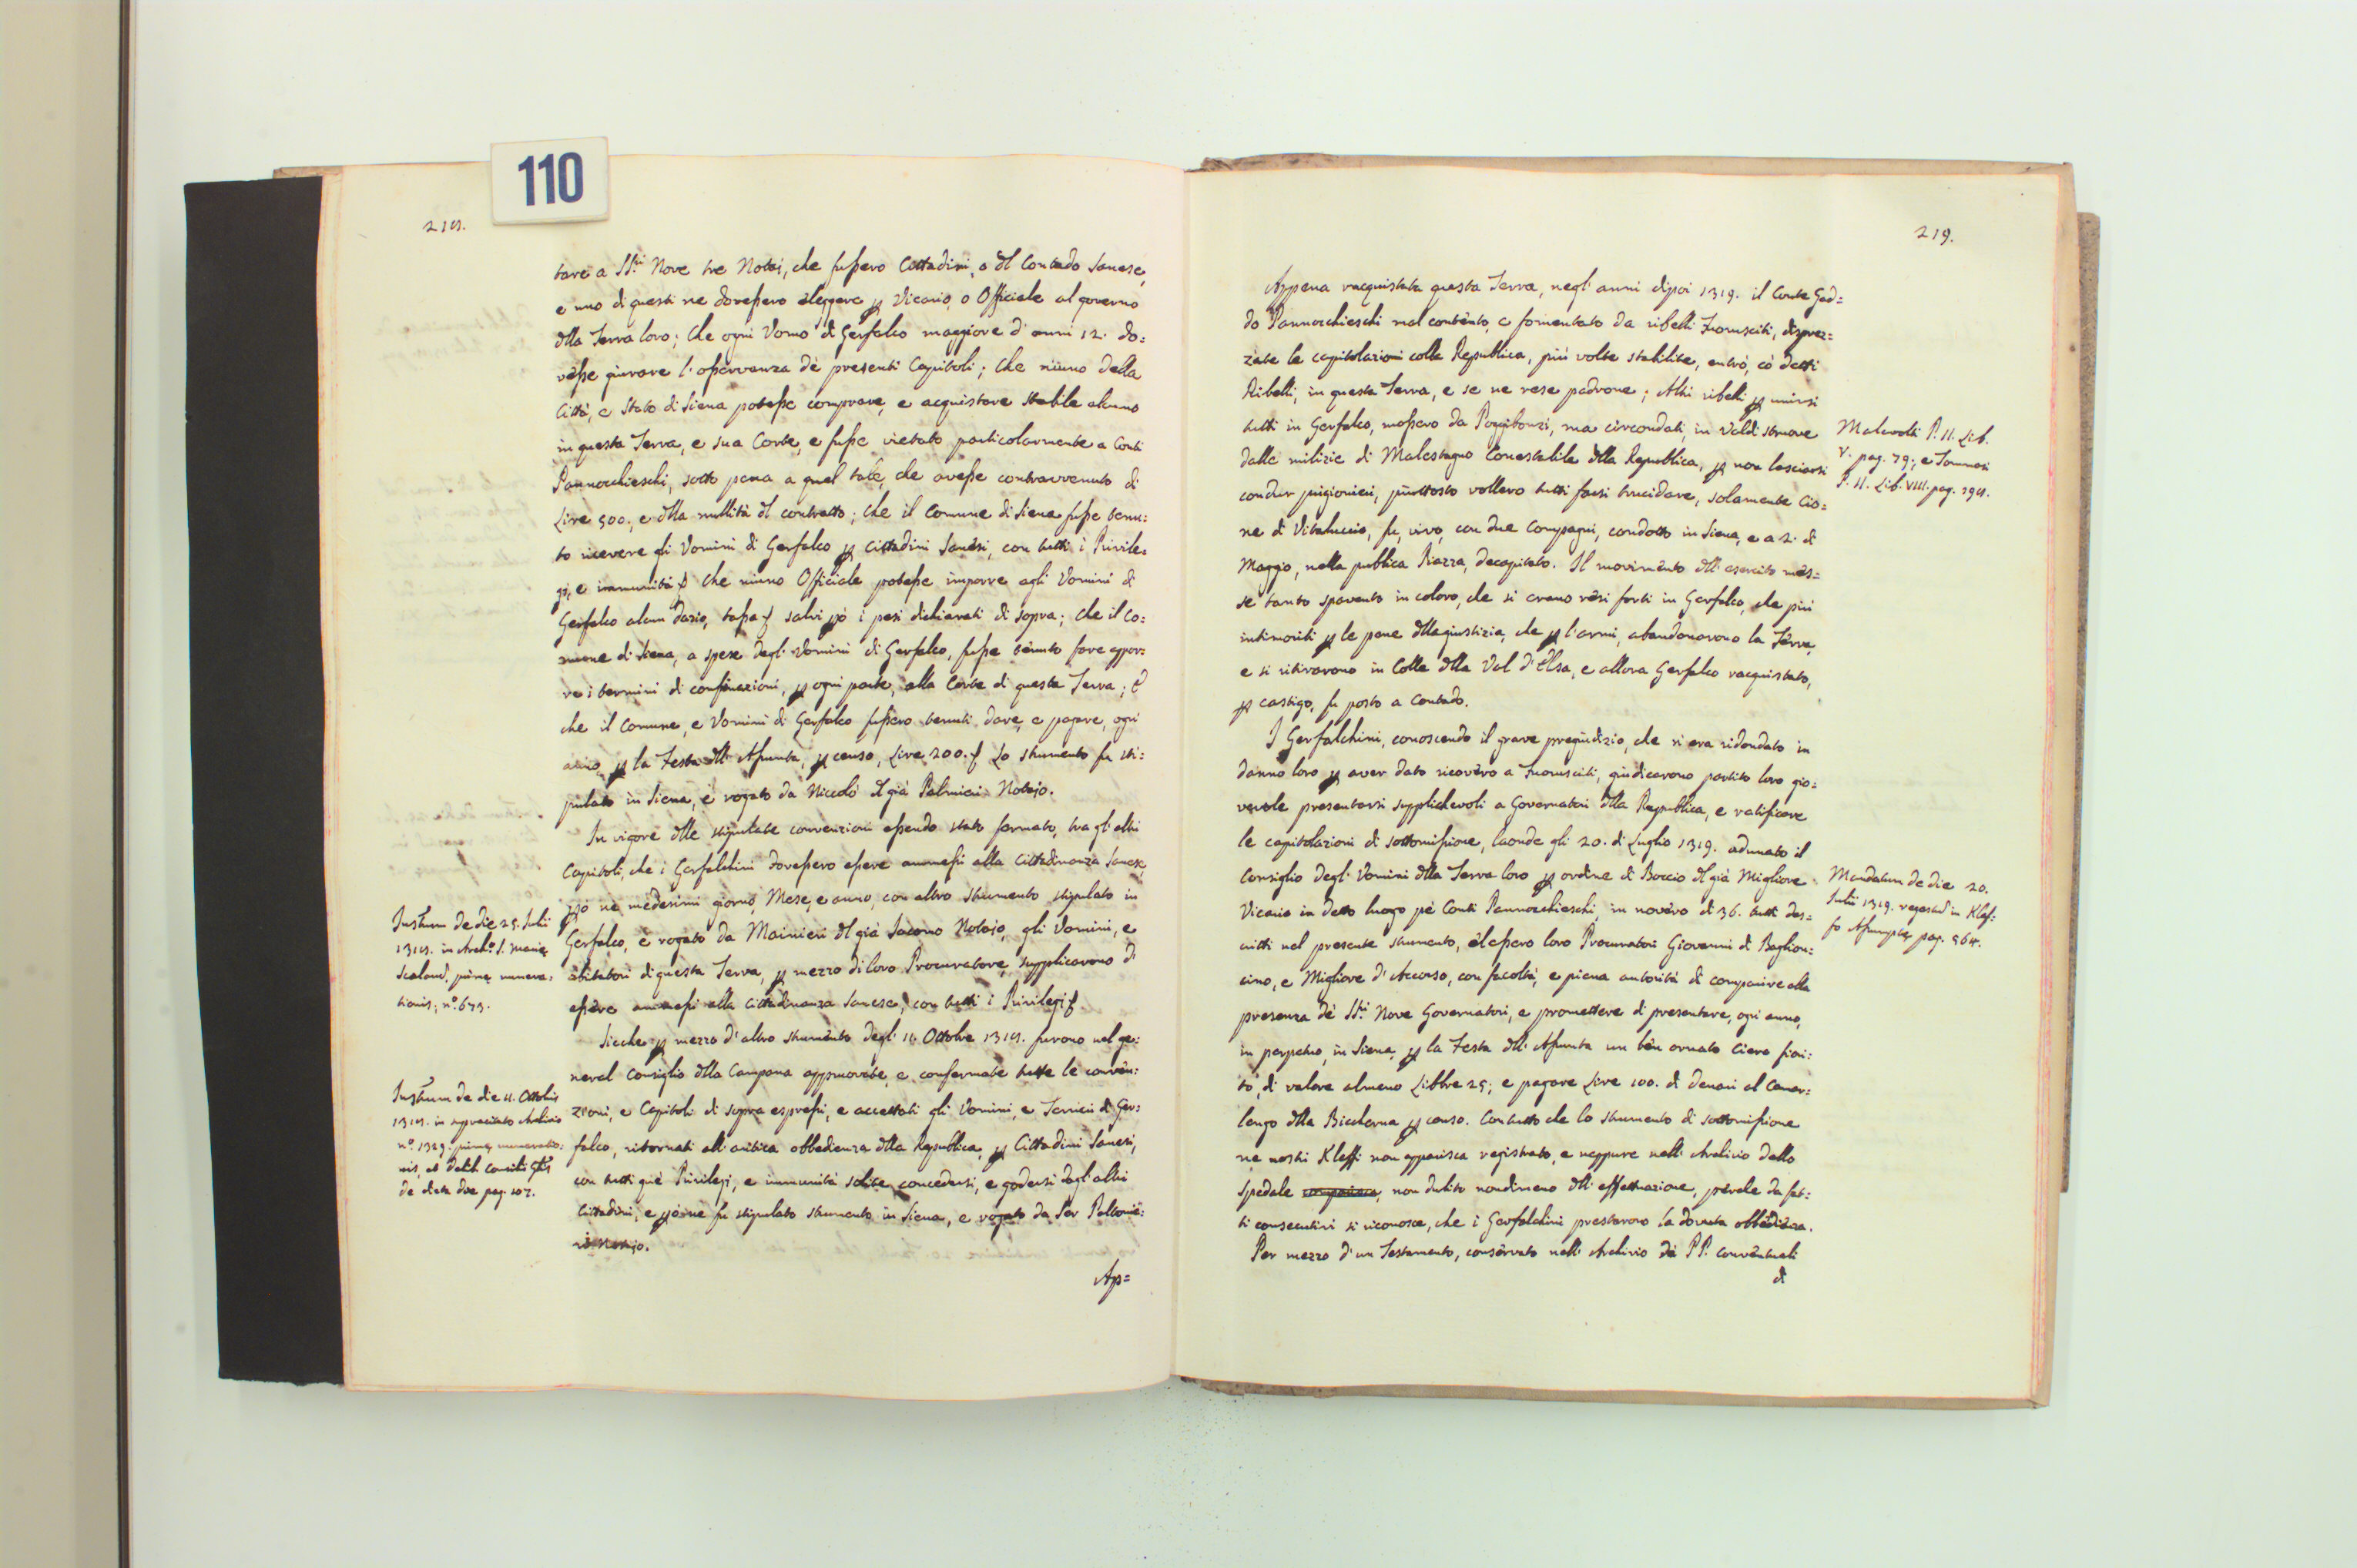 110
218.
tare a SS.ri Nove tre Notai, che fussero Cittadini, o dl Contado Sanese,
e uno di questi ne dovessero eleggere p Vicario, o Officiale al governo
dlla Terra loro; Che ogni Vomo di Gerfalco maggiore d'anni 12. do=
vesse giurare l'osservanza de presenti Capitoli; Che niuno della
Città, e Stato di Siena potesse comprare, e acquistare stabile alcuno
in questa Terra, e sua Corte, e fusse vietato particolarmente a Conti
Pannocchieschi, sotto pena a quel tale, che avesse contravvenuto di
Lire 500., e dlla nullità dl contratto; Che il Comune di Siena fusse tenu=
to ricevere gli Vomini di Gerfalco p Cittadini Sanesi, con tutti i Privile=
gi, e immunità Che niuno Officiale potesse imporre agli Vomini di
Gerfalco alcun dazio, tassa salvi pò i pesi dichiarati di sopra; Che il Co=
mune di Siena, a spese degl'Vomini di Gerfalco, fusse tenuto fare appor=
re i termini di confinazioni, p ogni parte, alla Corte di questa Terra; E
che il Comune, e Vomini di Gerfalco fussero tenuti dare, e pagare, ogni
anno, p la Festa dll'Assunta, p censo, Lire 200. Lo strumento fu sti=
pulato in Siena, e rogato da Niccolò dl già Palmieri Notajo.
In vigore dlle stipulate convenzioni essendo stato fermato, tra gl'altri
Capitoli, che i Gerfalchini dovessero essere ammessi alla Cittadinanza Sanese,
pò ne medesimi giorno, Mese, e anno, con altro strumento stipulato in
Gerfalco, e rogato da Mainieri dl già Iacomo Notajo, gli Vomini, e
abitatori di questa Terra, p mezzo di loro Procuratore, supplicarono di
essere ammessi alla cittadinanza Sanese, con tutti i Privilegi
Instrum de die 25. Julii
1318. in Arch.o S. Marie
Scalarum prime numera=
tionis; n.o 673.
Sicche p mezzo d'altro strumento degl'11. Ottobre 1318. furono nel ge=
neral Consiglio dlla Campana approvate, e confermate tutte le conven=
zioni, e Capitoli di sopra espressi, e accettati gli Vomini, e Terrieri di Ger=
falco, ritornati all'antica obbedienza dlla Republica, p Cittadini Sanesi,
con tutti que Privilegi, e immunità solite concedersi, e godersi dagl'altri
Cittadini, e pò ne fu stipulato strumento in Siena, e rogato da Ser
Notajo.
Instrum de die 11. Ottobris
1318. in apprecitato Archivio
n.o 1329. prime numeratio=
nis, et Delib. Consilii
de dicta die pag. 107.
Ap=
219.
Appena racquistata questa Terra, negl'anni dipoi 1319. il Conte Gad=
do Pannocchieschi mal contento, e fomentato da ribelli Fuorusciti, disprez=
zate le capitolazioni colla Republica, più volte stabilite, entrò, cò detti
Ribelli, in questa Terra, e se ne rese padrone; Altri ribelli p unirsi
tutti in Gerfalco, mossero da Poggibonzi, ma circondati, in Valdistrove
dalle milizie di Malestagno Conestabile dlla Republica, p non lasciarsi
condur prigionieri, piuttosto vollero tutti farsi trucidare, solamente Cio=
ne di Vitaluccio, fu, vivo, con due Compagni, condotto in Siena, e a 2. di
Maggio, nella publica Piazza, decapitato. Il movimento dll'esercito mes=
se tanto spavento in coloro, che si erano resi forti in Gerfalco, che più
intimoriti p le pene dlla giustizia, che p l'armi, abandonarono la Terra,
e si ritirarono in Colle dlla Val d'Elsa, e allora Gerfalco racquistato,
p castigo, fu posto a Contado.
Malavolti P. II. Lib.
V. pag. 79; e Tommasi
P. II. Lib. VIII. pag. 198.
I Gerfalchini, conoscendo il grave pregiudizio, che ri era ridondato in
danno loro p aver dato ricovero a Fuorusciti, giudicarono partito loro gio=
vevole presentarsi supplichevoli a Governatori dlla Republica, e ratificare
le capitolazioni di sottomissione, laonde gli 20. di Luglio 1319. adunato il
Consiglio degl'Vomini dlla Terra loro p ordine di Boccio dl già Migliore
Vicario in detto luogo pè Conti Pannocchieschi, in novero di 36. tutti des=
critti nel presente strumento, elessero loro Procuratori Giovanni di Baglion=
cino, e Migliore d'Accorso, con facoltà, e piena autorità di comparire alla
presenza de SS.ri Nove Governatori, e promettere di presentare, ogni anno,
in perpetuo, in Siena, p la Festa dll'Assunta un ben ornato Ciero fiori=
to, di valore almeno Libbre 25; e pagare Lire 100. di denari al Camar=
lengo dlla Biccherna p censo. Contutto che lo strumento di sottomissione
ne nostri Kleffi non apparisca registrato, e neppure nell'Archivio dello
Spedale comparisca, non dubito nondimeno dll'effettuazione, poichè da fat=
ti consecutivi si riconosce, che i Gerfalchini prestarono la dovuta obbedienza.
Mandatum de die 20.
Julii 1319. regestra in Klef=
fo Assumptę pag. 564.
Per mezzo d'un Testamento, conservato nell'Archivio dè PP. Conventuali
di